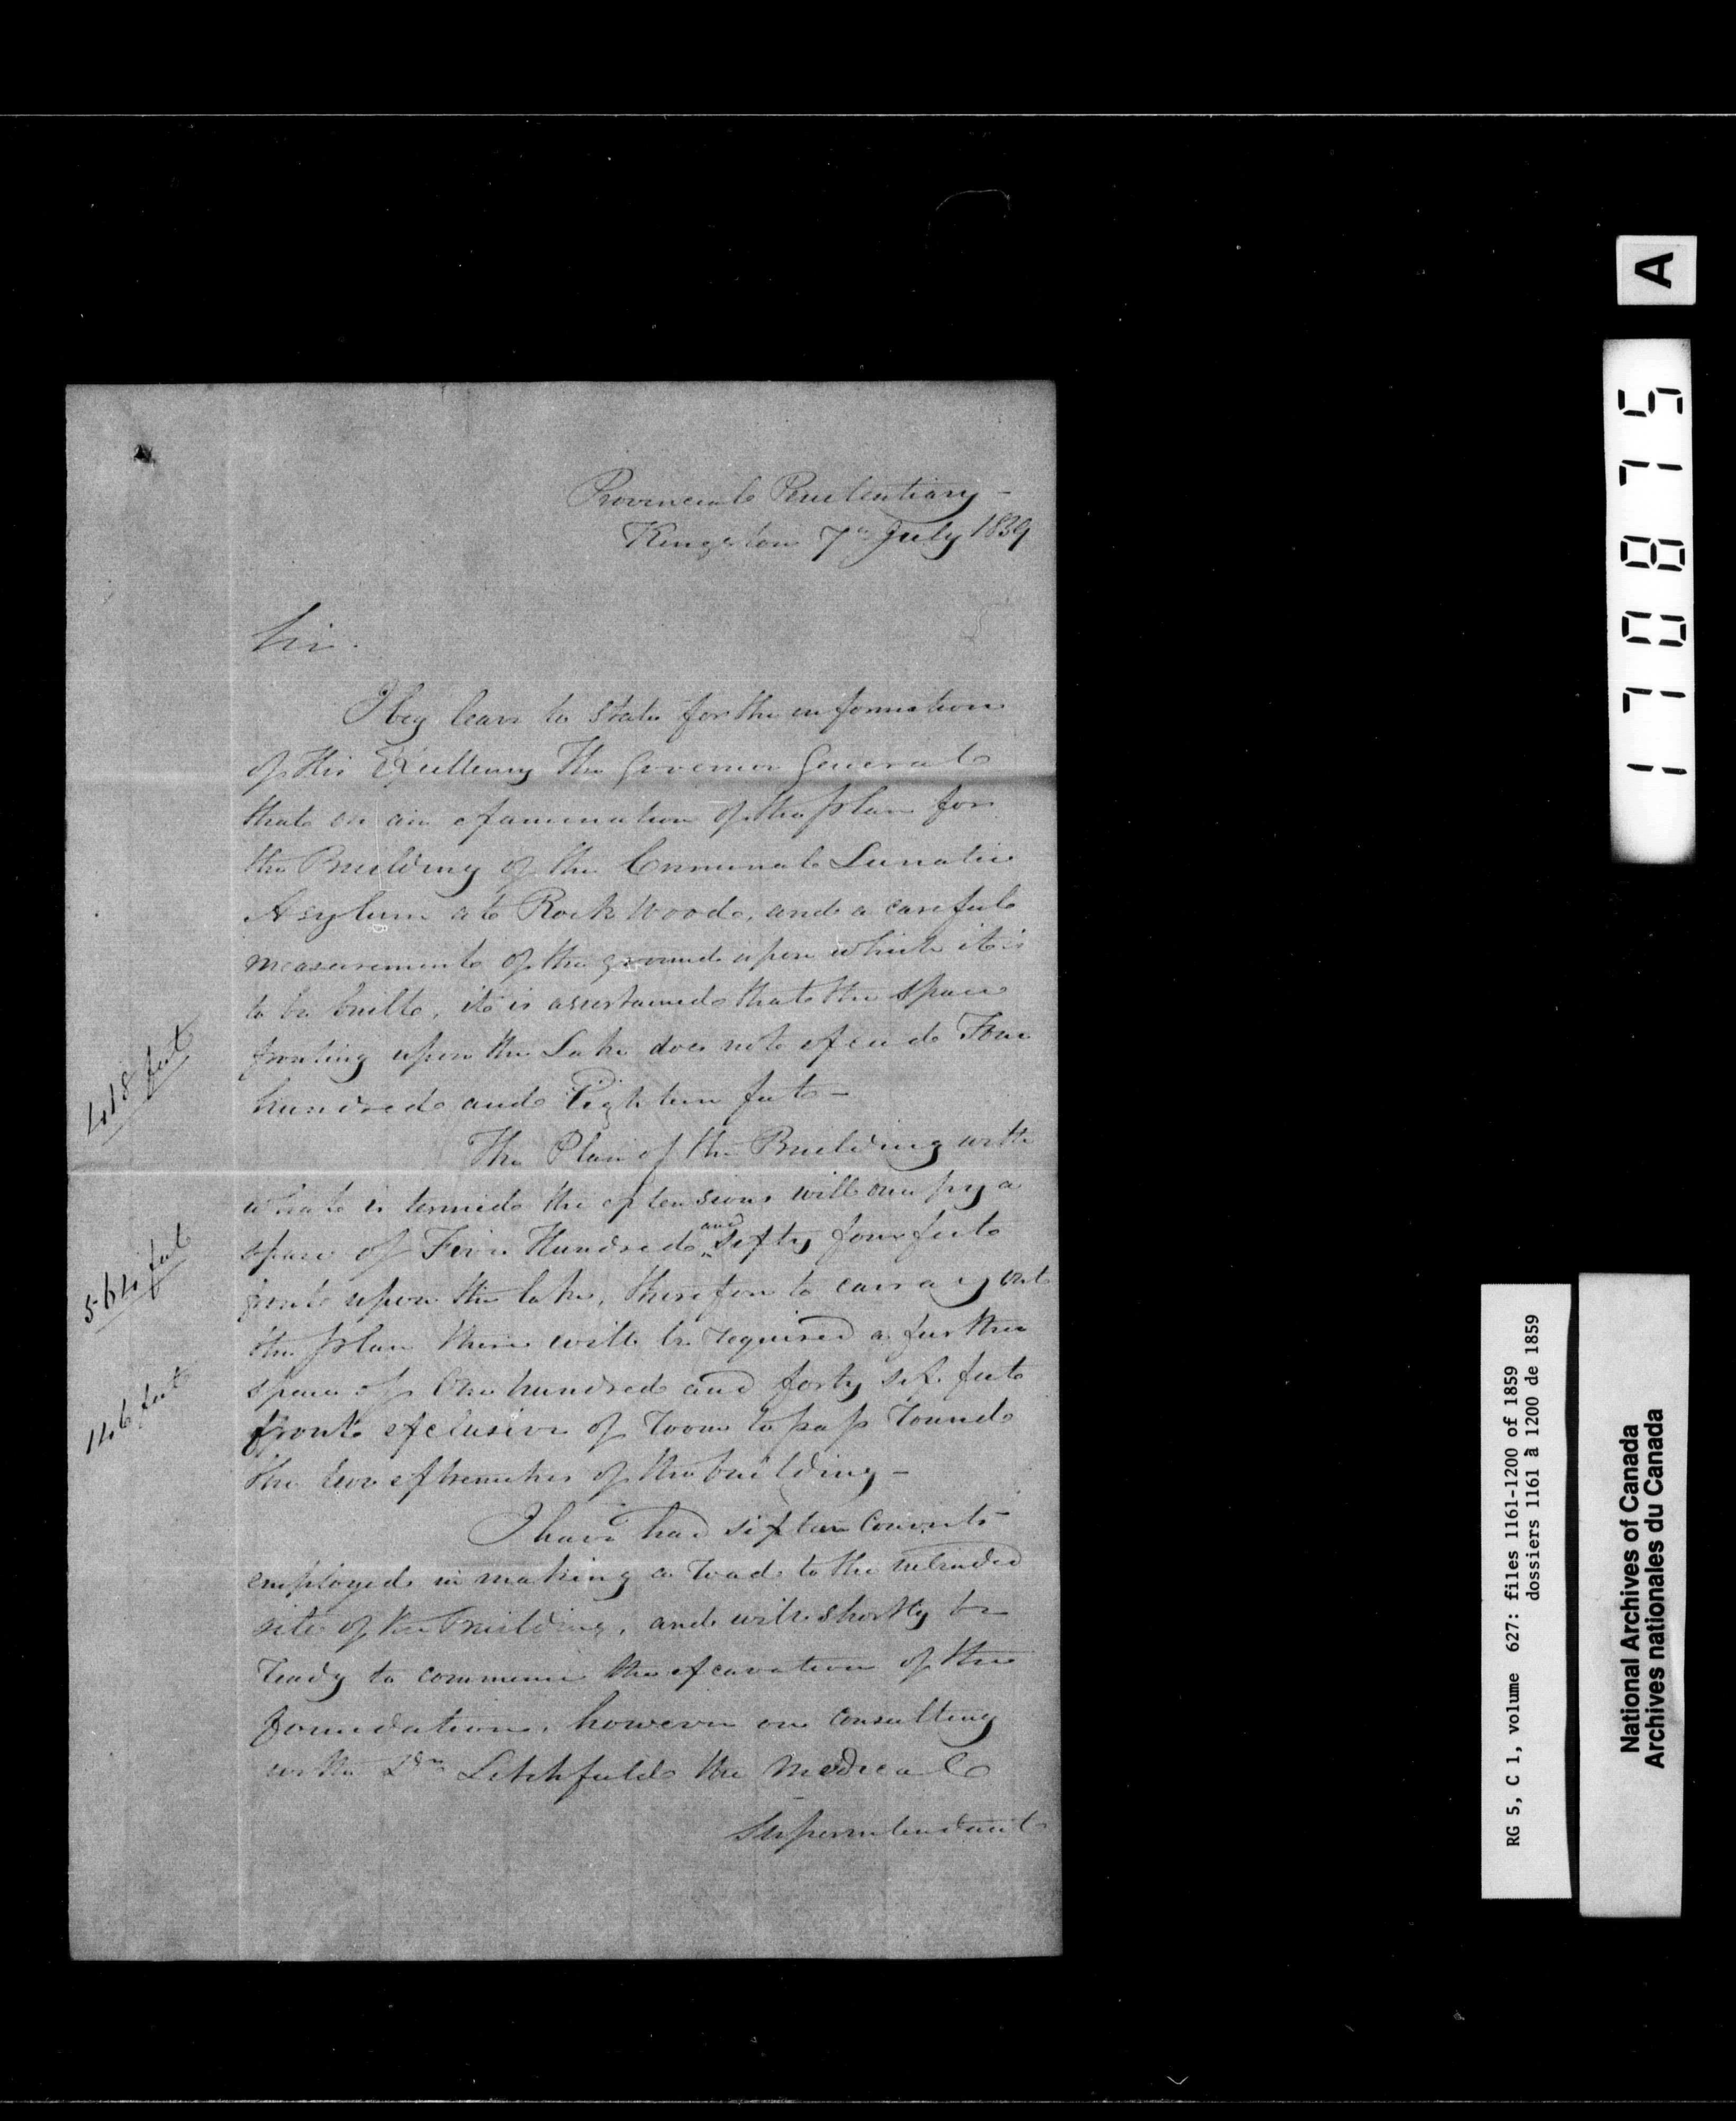 Provincial Penitentiary -
Kingston 7th July 1859
Sir.
I beg leave to state for the information
of His Excellency The Governor General
that on an examination of the plan for
the Building of the Criminal Lunatic
Asylum at Rockwood, and a careful
measurement of the ground upon which it is
to be built, it is assertained that the space
fronting upon the Lake does not exceed Four
hundred and Eighteen feet -
418 feet
The Plan of the Building with
what is termed the extensions will occupy a
space of Five Hundred and Sixty four feet
564 feet
front upon the lake, therefore to carry out
the plan there will be required a further
space of One hundred and forty six feet
146 feet
front exclusive of room to pass round
the two extremities of the building -
I have had sixteen Convicts
employed in making a road to the intended
site of the building, and will shortly be
ready to commence the excavation of the
foundation, however on consulting
with Dr Litchfield the Medical
Superintendent
A
170875
RG 5, C 1, volume 627: files 1161-1200 of 1859
dossiers 1161 à 1200 de 1859
National Archives of Canada
Archives nationales du Canada